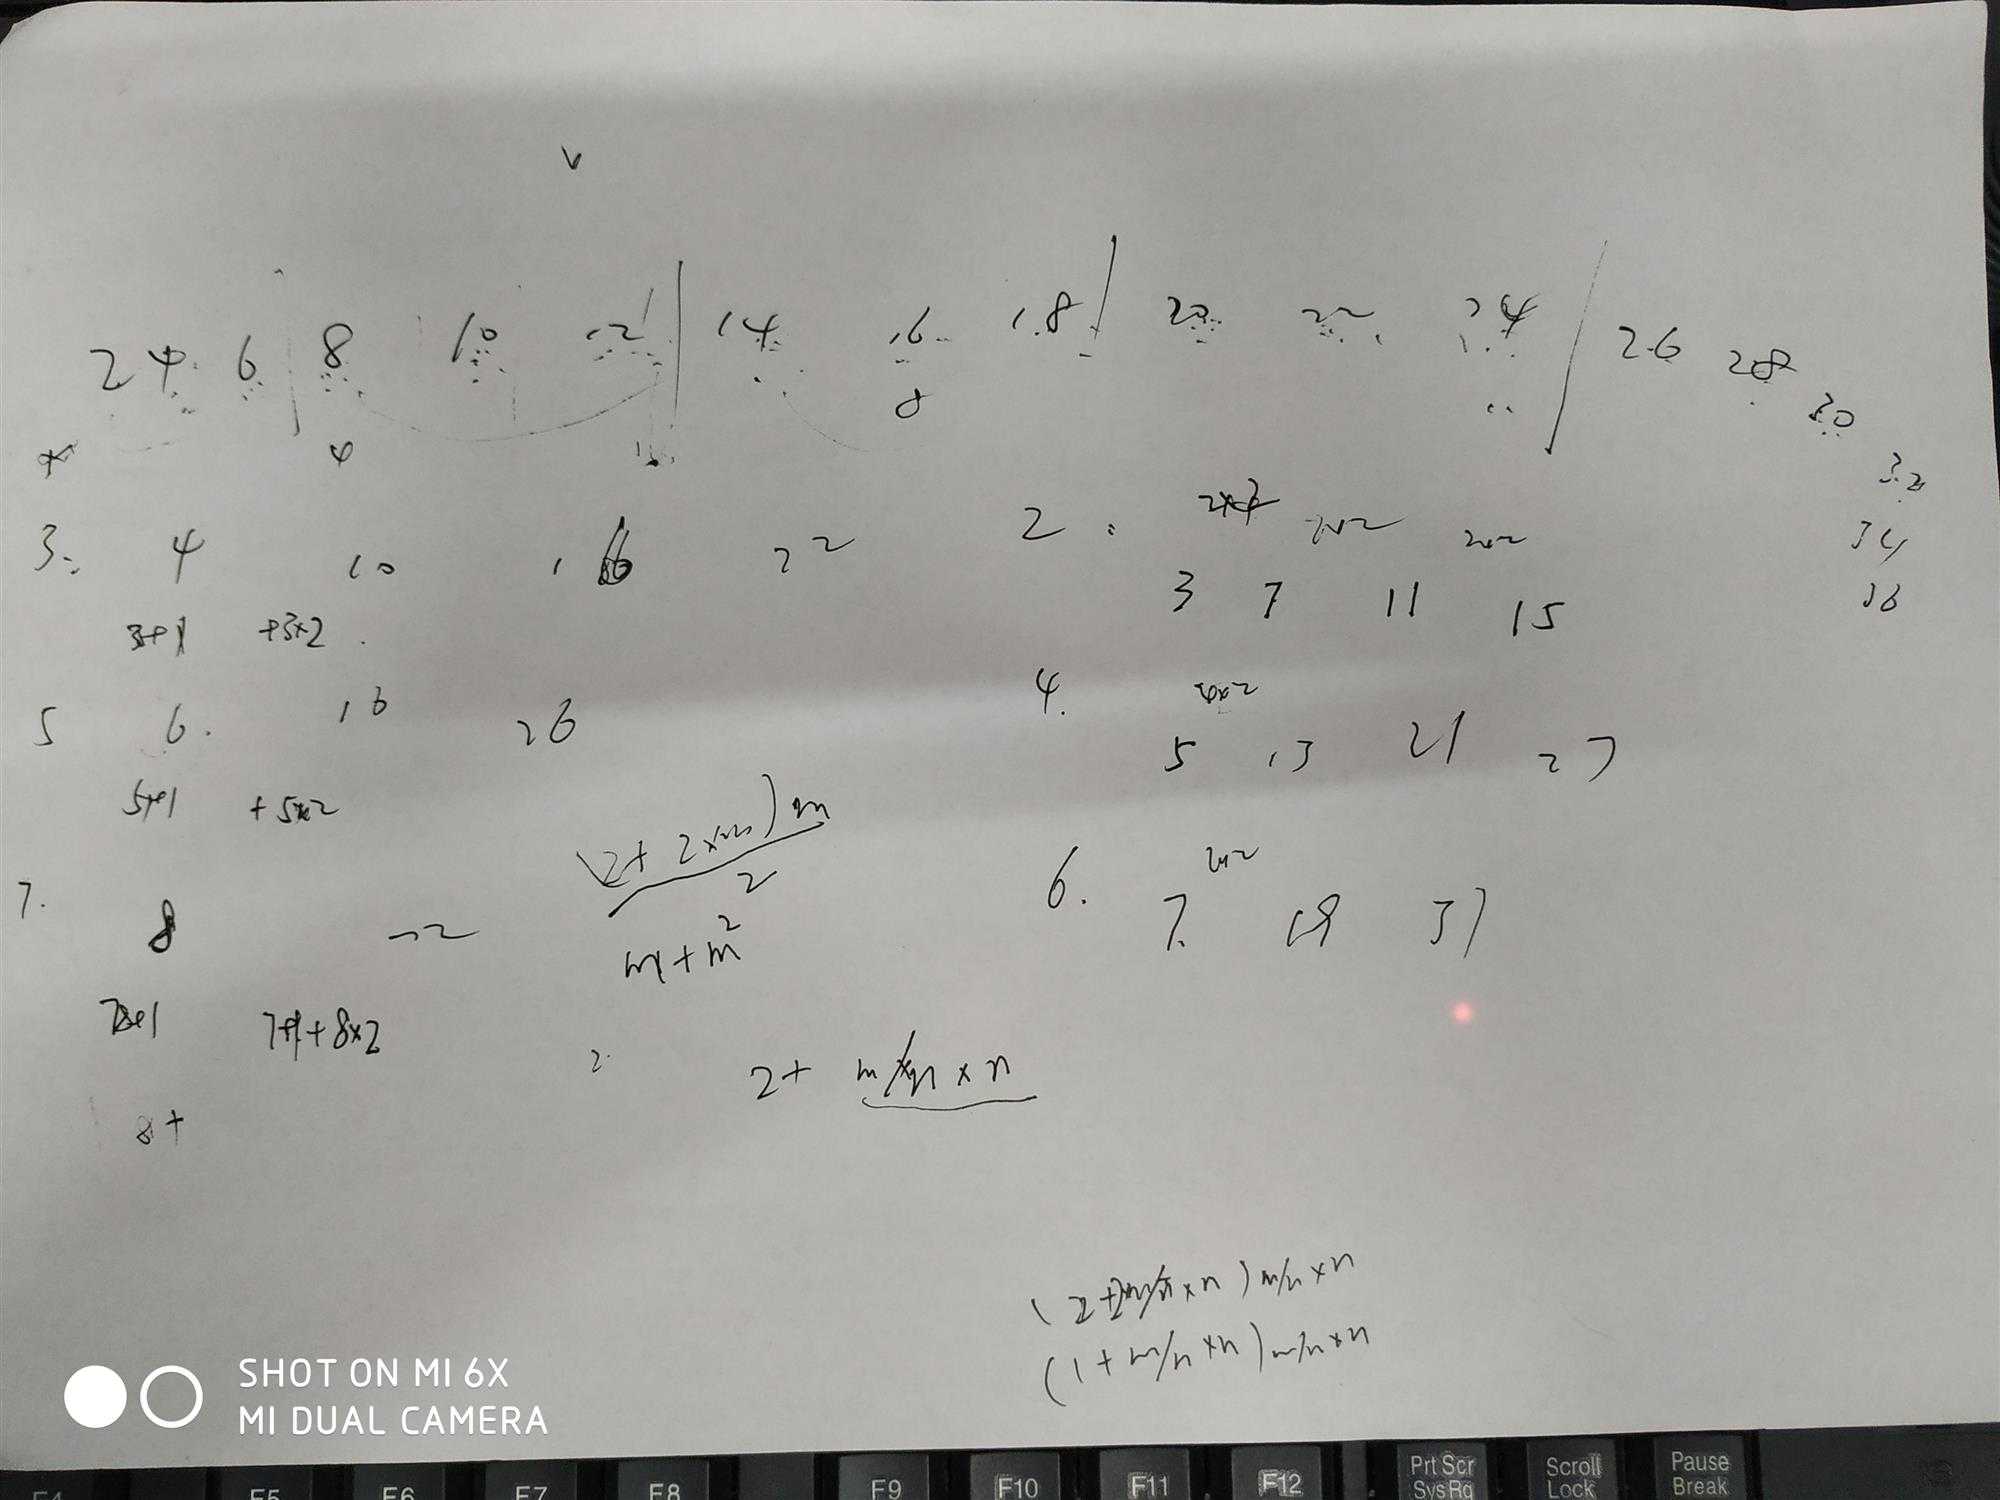 2 4 6 8 10 12 14 16 18 20 22 24 26 28 30
4 8
32
3. 4 10 16 22 2: 2×2 2×2 34
3 7 11 15 36
3+1 +3×2
5 6. 16 26 4. 4×2
5 13 21 27
5+1 +5×2
(2+2×m)m
2
7. 8 22 6.
7. 19 31
m+m²
7+1 7+1+8×2
2+ m/n×n
8+
(2+2m/n×n)m/n×n
(1+m/n×n)m/n×n
SHOT ON MI 6X
MI DUAL CAMERA
F5 F6 F7 F8 F9 F10 F11 F12 Prt Scr SysRq Scroll Lock Pause Break